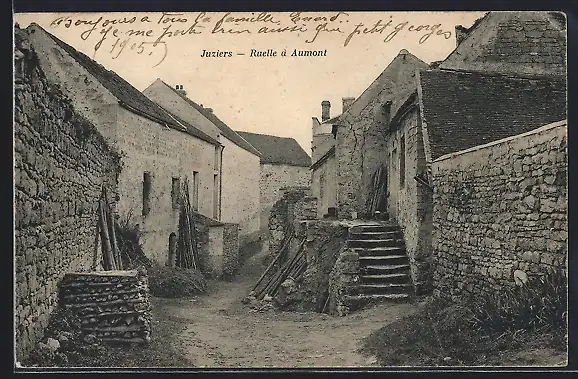 Bonjours a tous Sa famille Enard
je me porte bien ainsi que petit georges
1905
Juziers — Ruelle à Aumont